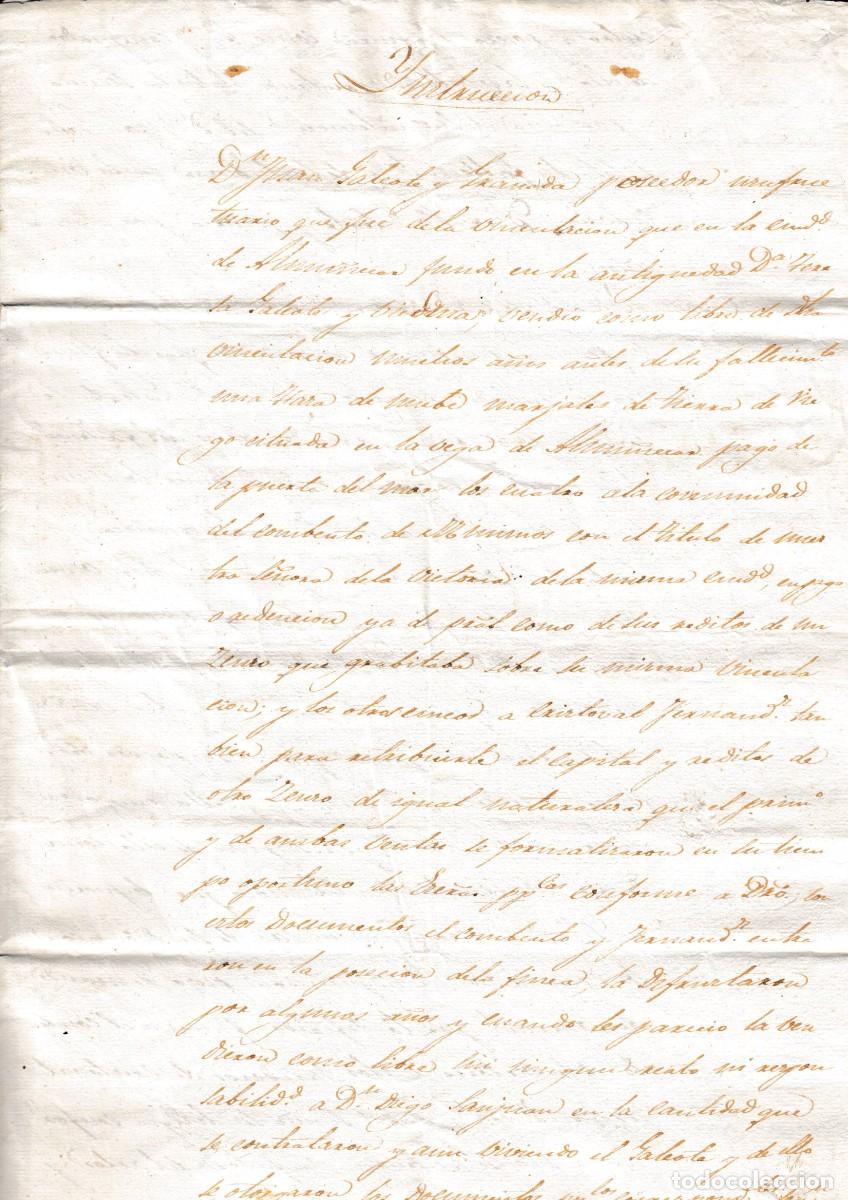 Ynstruccion
Dn Juan Galeote y Granada poseedor usufruc
tuario que fue de la vinculacion que en la ciudd
de Almuñecar fundó en la antiguedad Da Tere
sa Galeote y vendio como libre de dha
vinculacion muchos años antes de su fallecimto
una Haza de nuebe marjales de tierra de rie
go situada en la vega de Almuñecar pago de
la puerta del mar los cuatro a la comunidad
del combento de Minimos con el titulo de nues
tra Señora de la Victoria de la misma ciudd, en pago
o redencion ya de pral como de sus reditos de un
Zenso que grabitaba sobre su misma vincula
cion; y los otros cinco a Cristoval Fernandz tan
bien para retribuirle el capital y reditos de
otro Zenso de igual naturaleza que el primo
y de ambas ventas se formalizaron en su tiem
po oportuno las Escras ppcas conforme a Dro, con
estos Documentos el combento y Fernandz entra
ron en la posecion de la finca, la Disfrutaron
por algunos años y cuando les parecio la ven
dieron como libre sin ningun resto ni respon
sabilidd a Dn Diego Sanjuan en la cantidad que
se contrataron y aun viviendo el Galeote y de ello
se otorgaron los Documentos
todocoleccion